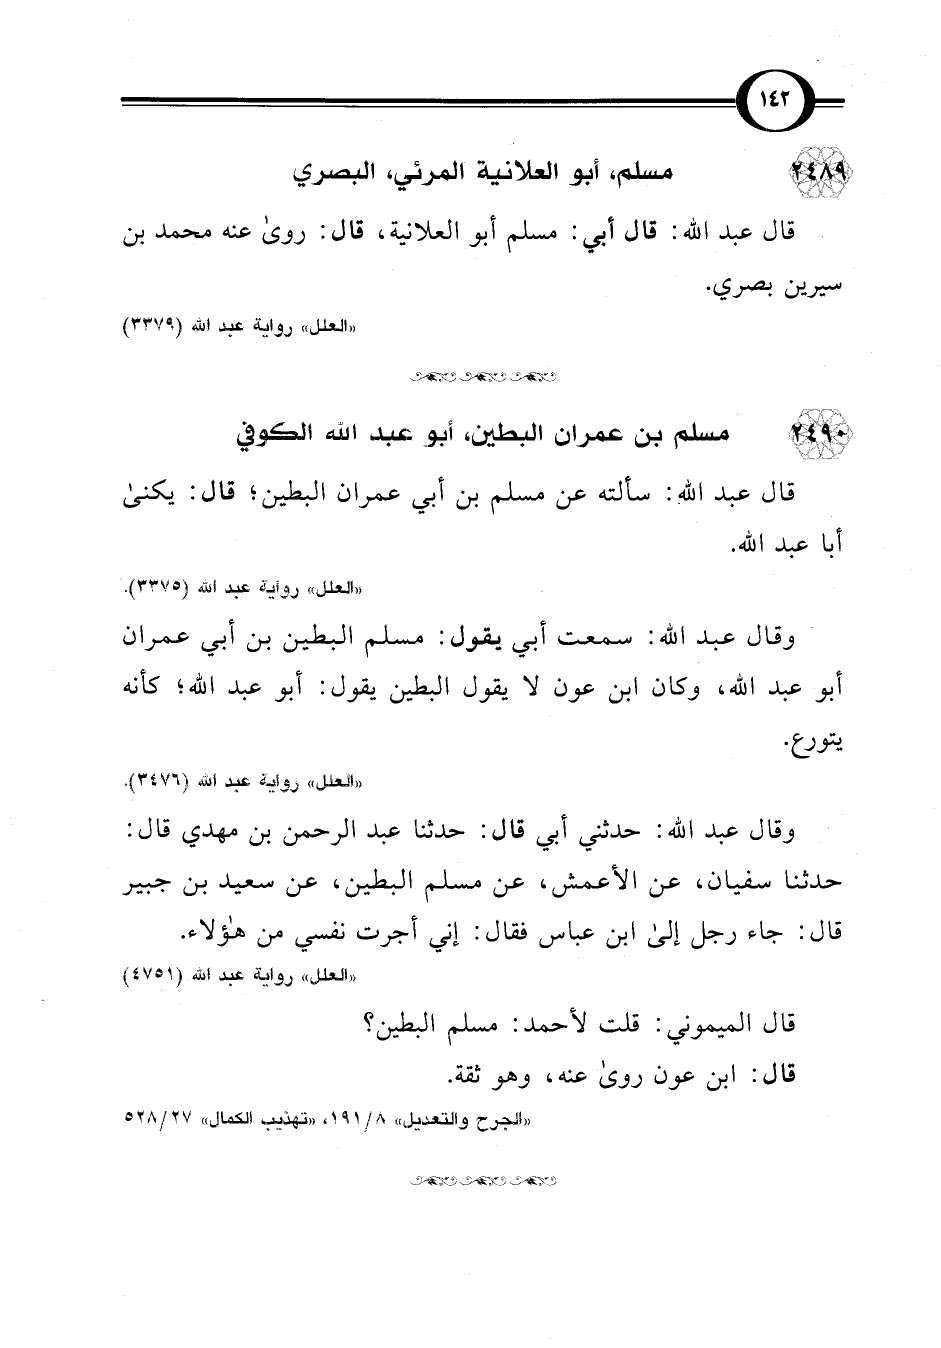 ١٤٢
٢٤٨٩ مسلم، أبو العلانية المرئي، البصري
قال عبد الله: قال أبي: مسلم أبو العلانية، قال: روىٰ عنه محمد بن
سيرين بصري.
«العلل» رواية عبد الله (٣٣٧٩)
٢٤٩٠ مسلم بن عمران البطين، أبو عبد الله الكوفي
قال عبد الله: سألته عن مسلم بن أبي عمران البطين؛ قال: يكنىٰ
أبا عبد الله.
«العلل» رواية عبد الله (٣٣٧٥).
وقال عبد الله: سمعت أبي يقول: مسلم البطين بن أبي عمران
أبو عبد الله، وكان ابن عون لا يقول البطين يقول: أبو عبد الله؛ كأنه
يتورع.
«العلل» رواية عبد الله (٣٤٧٦).
وقال عبد الله: حدثني أبي قال: حدثنا عبد الرحمن بن مهدي قال:
حدثنا سفيان، عن الأعمش، عن مسلم البطين، عن سعيد بن جبير
قال: جاء رجل إلىٰ ابن عباس فقال: إني أجرت نفسي من هٰؤلاء.
«العلل» رواية عبد الله (٤٧٥١)
قال الميموني: قلت لأحمد: مسلم البطين؟
قال: ابن عون روىٰ عنه، وهو ثقة.
«الجرح والتعديل» ٨/١٩١، «تهذيب الكمال» ٢٧/٥٢٨